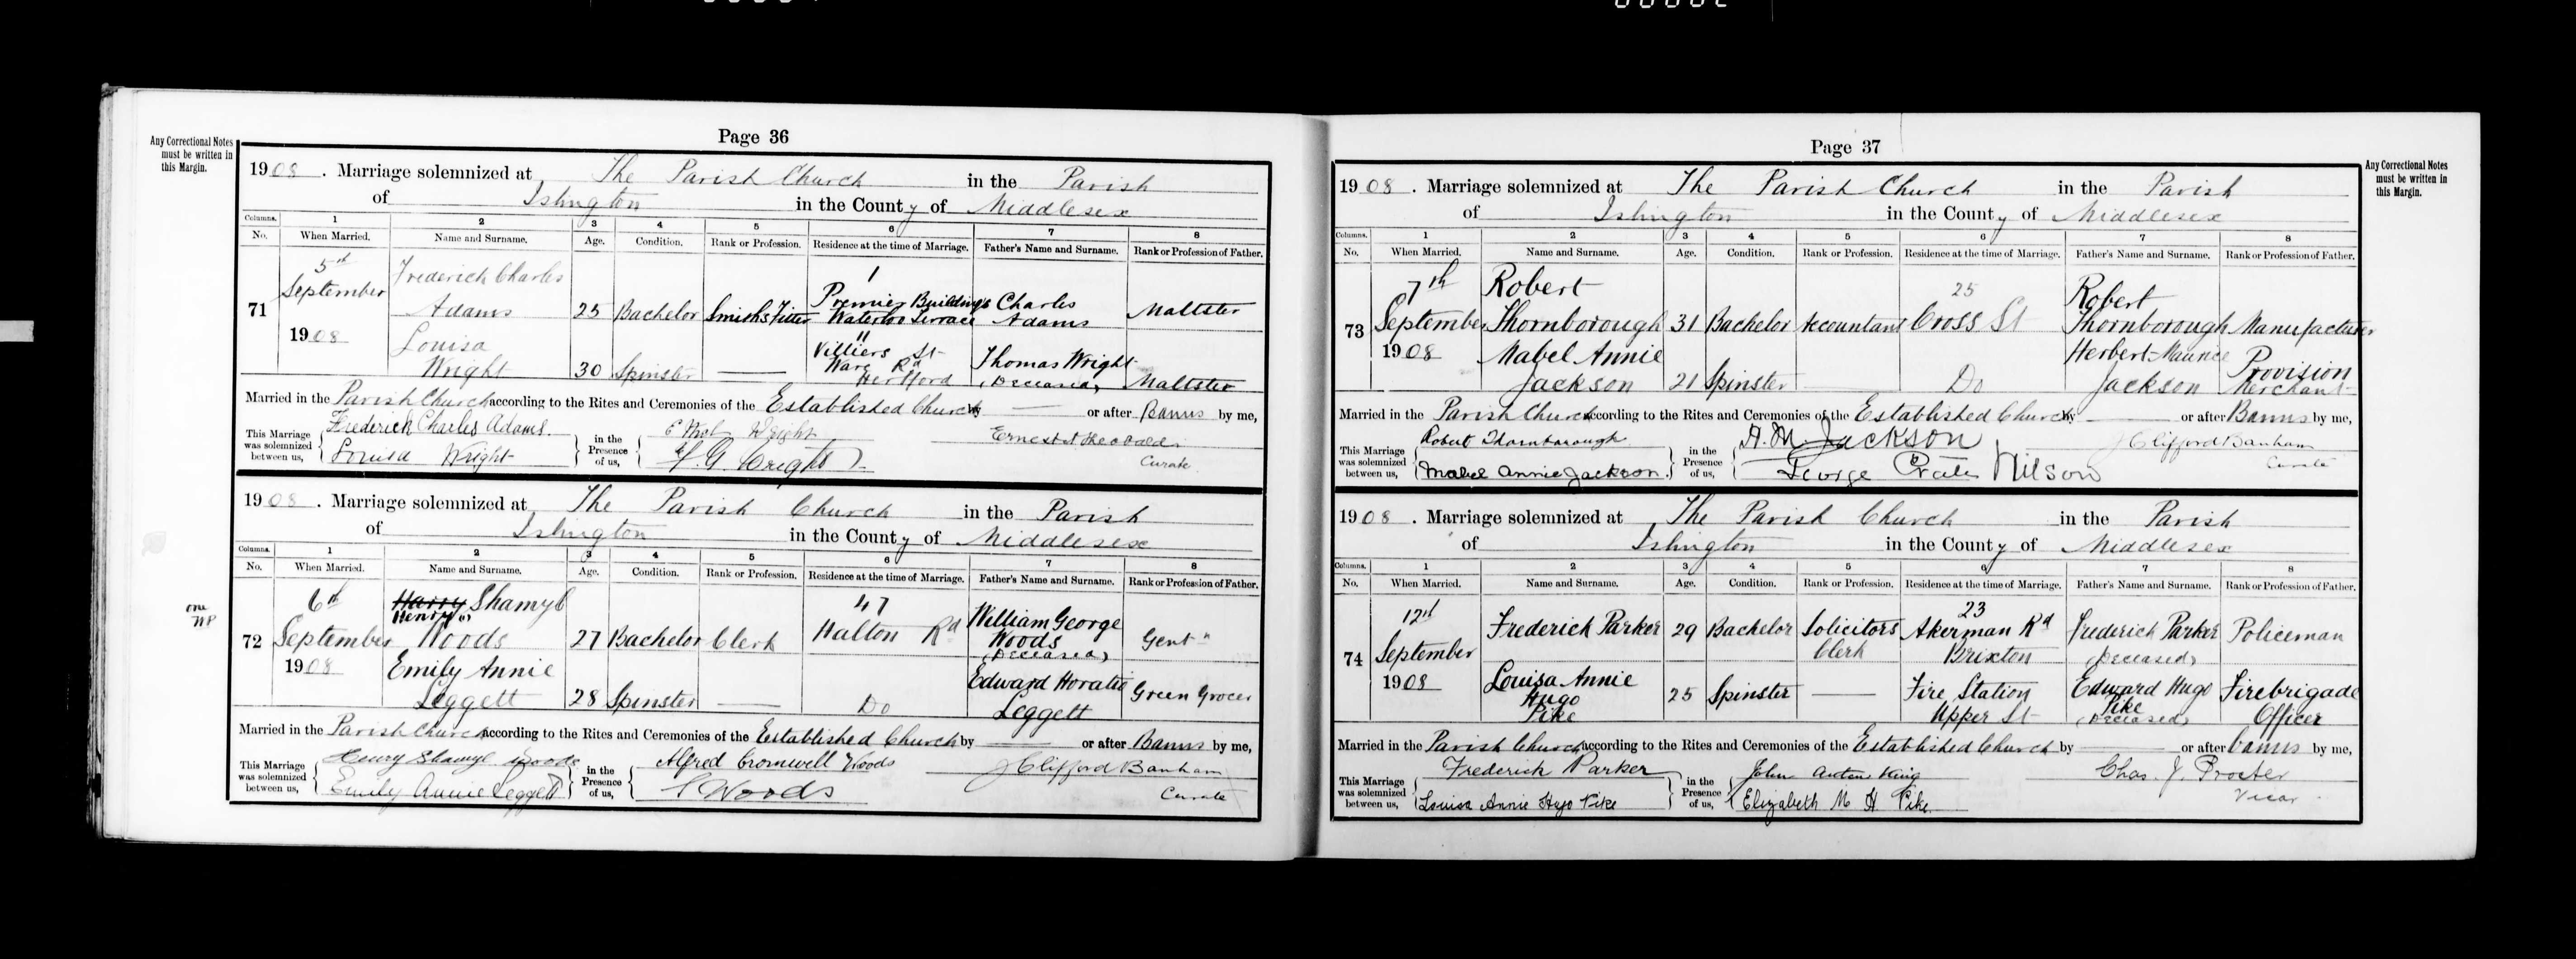 Page 36
Any Correctional Notes
must be written in
this Margin.
1908. Marriage solemnized at The Parish Church in the Parish
of Islington in the County of Middlesex
Columns. 1 2 3 4 5 6 7 8
No. When Married. Name and Surname. Age. Condition. Rank or Profession. Residence at the time of Marriage. Father's Name and Surname. Rank or Profession of Father.
71 5th September 1908 Frederick Charles Adams 25 Bachelor Smiths Fitter 1 Premier Buildings Waterloo Terrace Charles Adams Maltster
Louisa Wright 30 Spinster 11 Villiers St Ware Rd Hertford Thomas Wright (Deceased) Maltster
Married in the Parish Church according to the Rites and Ceremonies of the Established Church by or after Banns by me,
This Marriage was solemnized between us, Frederick Charles Adams. Louisa Wright in the Presence of us, Wright Wright Ernest Theobald Curate
1908. Marriage solemnized at The Parish Church in the Parish
of Islington in the County of Middlesex
Columns. 1 2 3 4 5 6 7 8
No. When Married. Name and Surname. Age. Condition. Rank or Profession. Residence at the time of Marriage. Father's Name and Surname. Rank or Profession of Father.
one
72 6th September 1908 Harry Henry Shamyl Woods 27 Bachelor Clerk 47 Halton Rd William George Woods (Deceased) Gent
Emily Annie Leggett 28 Spinster Do Edward Horatio Leggett Green Grocer
Married in the Parish Church according to the Rites and Ceremonies of the Established Church by or after Banns by me,
This Marriage was solemnized between us, Henry Shamyl Woods Emily Annie Leggett in the Presence of us, Alfred Cromwell Woods Woods J Clifford Banham Curate
Page 37
Any Correctional Notes
must be written in
this Margin.
1908. Marriage solemnized at The Parish Church in the Parish
of Islington in the County of Middlesex
Columns. 1 2 3 4 5 6 7 8
No. When Married. Name and Surname. Age. Condition. Rank or Profession. Residence at the time of Marriage. Father's Name and Surname. Rank or Profession of Father.
73 7th September 1908 Robert Thornborough 31 Bachelor Accountant 25 Cross St Robert Thornborough Manufacturer
Mabel Annie Jackson 21 Spinster Do Herbert Maurice Jackson Provision Merchant
Married in the Parish Church according to the Rites and Ceremonies of the Established Church by or after Banns by me,
This Marriage was solemnized between us, Robert Thornborough Mabel Annie Jackson. in the Presence of us, H. M. Jackson George Wilson J Clifford Banham Curate
1908. Marriage solemnized at The Parish Church in the Parish
of Islington in the County of Middlesex
Columns. 1 2 3 4 5 6 7 8
No. When Married. Name and Surname. Age. Condition. Rank or Profession. Residence at the time of Marriage. Father's Name and Surname. Rank or Profession of Father.
74 12th September 1908 Frederick Parker 29 Bachelor Solicitors Clerk 23 Akerman Rd Brixton Frederick Parker (Deceased) Policeman
Louisa Annie Hugo Pike 25 Spinster Fire Station Upper St Edward Hugo Pike (Deceased) Firebrigade Officer
Married in the Parish Church according to the Rites and Ceremonies of the Established Church by or after banns by me,
This Marriage was solemnized between us, Frederick Parker Louisa Annie Hugo Pike in the Presence of us, John King Elizabeth M H Pike. Chas. J. Procter Vicar